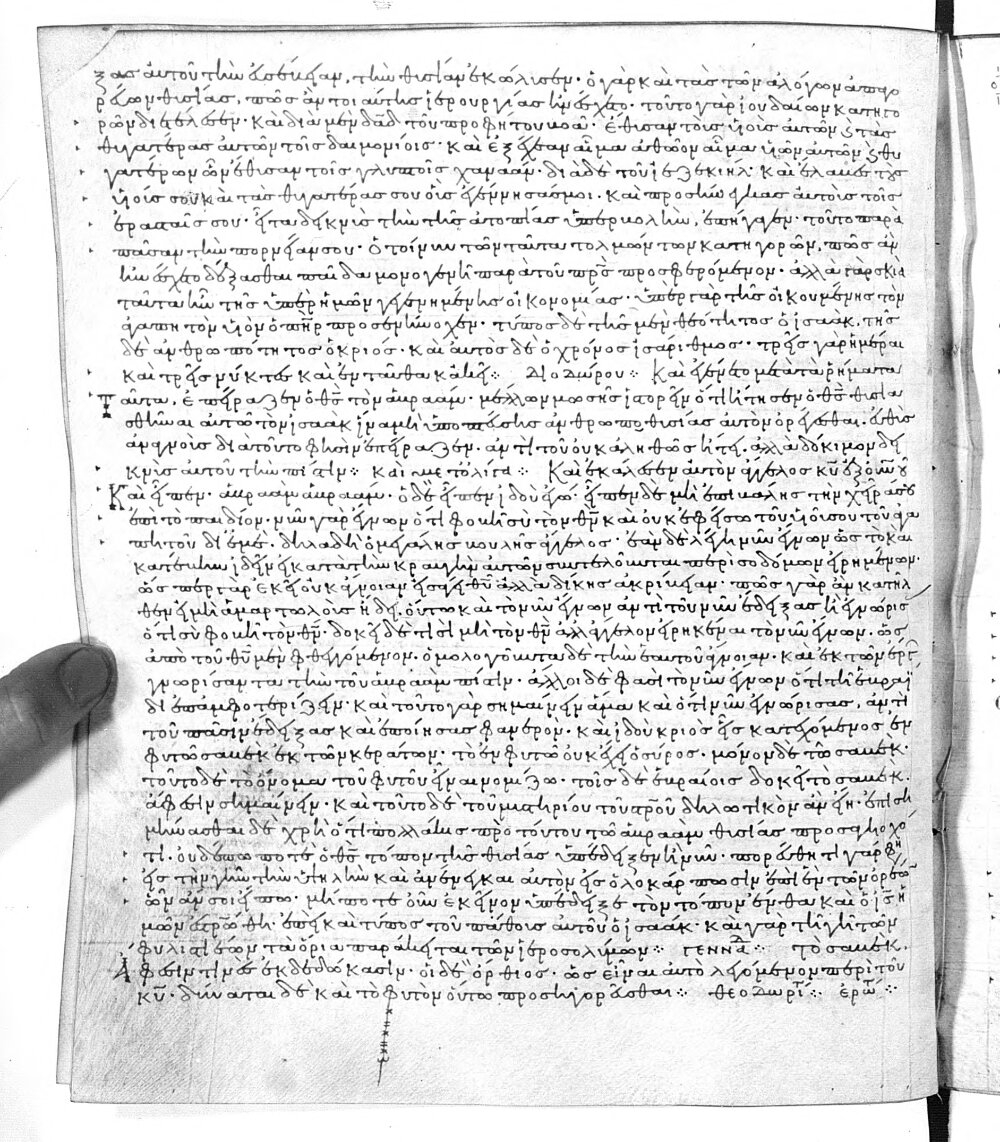 ξας αὐτοῦ τὴν εὐσέβειαν, τὴν θυσίαν ἐκώλυσεν· ὁ γὰρ καὶ τὰς τῶν ἀλόγων ἀπαγο
ρεύων θυσίας, πῶς ἄν τοιαύτης ἱερουργίας ἠνέσχετο· τοῦτο γὰρ ἰουδαίων κατηγο
ρῶν διετέλεσεν· καὶ διὰ μὲν δαδ τοῦ προφήτου βοᾶ· ἔθυσαν τοὺς υἱοὺς αὐτῶν καὶ τὰς
θυγατέρας αὐτῶν τοῖς δαιμονίοις· καὶ ἐξέχεαν αἷμα ἀθῶον αἷμα υἱῶν αὐτῶν καὶ θυ
γατέρων ὧν ἔθυσαν τοῖς γλυπτοῖς χαναάν· διὰ δὲ τοῦ ἰεζεκιήλ· καὶ ἔλαβες τοὺς
υἱούς σου καὶ τὰς θυγατέρας σου οὓς ἐγέννησάς μοι· καὶ προσήνεγκας αὐτοὺς τοῖς
ἐρασταῖς σου· εἶτα δεικνὺς τὴν τῆς ἀτοπίας ὑπερβολὴν, ἐπήγαγεν· τοῦτο παρὰ
πᾶσαν τὴν πορνείαν σου· ὁ τοίνυν τῶν ταῦτα τολμώντων κατηγορῶν, πῶς ἂν
ἠνέσχετο δέξασθαι παῖδα μονογενῆ παρὰ τοῦ πρς προσφερόμενον· ἀλλὰ γὰρ σκιὰ
ταῦτα ἦν τῆς ὑπὲρ ἡμῶν γεγενημένης οἰκονομίας· ὑπὲρ γὰρ τῆς οἰκουμένης τὸν
ἀγαπητὸν υἱὸν ὁ πηρ προσενήνοχεν· τύπος δὲ τῆς μὲν θεότητος ὁ ἰσαὰκ, τῆς
δὲ ἀνθρωπότητος ὁ κριός· καὶ αὐτὸς δὲ ὁ χρόνος ἰσάριθμος· τρεῖς γὰρ ἡμέραι
καὶ τρεῖς νύκτες καὶ ἐνταῦθα κἀκεῖ⁘ Διοδώρου⁘ Καὶ ἐγένετο μετὰ τὰ ῥήματα
ταῦτα, ἐπείραζεν ὁ θς τὸν ἀβραάμ· μέλλων μωσῆς ἱστορεῖν ὅτι ἤτησεν ὁ θς θυσια
σθῆναι αὐτῶ τὸν ἰσαὰκ ἵνα μὴ ὑποπτεύσης ἀνθρωποθυσίας αὐτὸν ὀρέγεσθαι· εὐθὺς
ἀναγνοὺς διὰ τοῦτο φησὶν ἐπείραζεν· ἀντὶ τοῦ οὐκ ἀληθῶς ἤτει, ἀλλὰ δόκιμον δει
κνὺς αὐτοῦ τὴν πίστιν⁘ καὶ μετ ὀλίγα⁘ Καὶ ἐκάλεσεν αὐτὸν ἄγγελος κυ ἐξ οὐνου
Καὶ εἶπεν· ἀβραὰμ ἀβραάμ· ὁ δὲ εἶπεν ἰδοὺ ἐγώ· εἶπεν δὲ μὴ ἐπιβάλης τὴν χεῖρά σου
ἐπὶ τὸ παιδίον· νῦν γὰρ ἔγνων ὅτι φοβῆ σὺ τὸν θν καὶ οὐκ ἐφείσω τοῦ υἱοῦ σου τοῦ ἀγα
πητοῦ δι ἐμέ· δηλαδὴ ὁ μεγάλης βουλῆς ἄγγελος· ἐὰν δὲ λέγη νῦν ἔγνων ὡς τὸ κα
καταβὰς ἰδεῖν εἰ κατὰ τὴν κραυγὴν αὐτῶν συντελοῦνται περὶ σοδόμων εἰρημένων·
ὥσπερ γὰρ ἐκεῖ οὐκ ἄγνοιαν εἰσάγει θυ ἀλλὰ δίκης ἀκρίβειαν· πῶς γὰρ ἂν κατῆλ
θεν εἰ μὴ ἁμαρτωλοὺς ἤδει· οὕτω καὶ τὸ νῦν ἔγνων ἀντὶ τοῦ νῦν ἔδειξας ἢ ἐγνώρισ
ὅτι σὺ φοβῆ τὸν θν· δοκεῖ δέ τισι μὴ τὸν θν ἀλλ ἄγγελον εἰρηκέναι τὸ νῦν ἔγνων· ὡς
ἀπὸ τοῦ θυ μὲν φθεγγόμενον· ὁμολογοῦντα δὲ τὴν ἑαυτοῦ ἄγνοιαν· καὶ ἐκ τῶν ἔργ
γνωρίσαντα τὴν τοῦ ἀβραὰμ πίστιν· ἄλλοι δέ φασι τὸ νῦν ἔγνων ὅτι τῆ ἑβραΐ
δι ἐπαμφοτερίζειν· καὶ τοῦτο γὰρ σημαίνειν ἅμα καὶ ὅτι νῦν ἐγνώρισας, ἀντὶ
τοῦ πᾶσιν ἔδειξας καὶ ἐποίησας φανερόν· καὶ ἰδοὺ κριὸς εἷς κατεχόμενος ἐν
φυτῶ σαβὲκ ἐκ τῶν κεράτων· τὸ ἐν φυτῶ οὐκ ἔχει ὁ σύρος· μόνον δὲ τῶ σαβέκ·
τοῦτο δὲ τὸ ὄνομα τοῦ φυτοῦ εἶναι νομίζω· τοῖς δὲ ἑβραίοις δοκεῖ τὸ σαβὲκ
ἄφεσιν σημαίνειν· καὶ τοῦτο δὲ τοῦ μυστηρίου τοῦ στρου δηλωτικὸν ἂν εἴη· ἐπιση
μήνασθαι δὲ χρὴ ὅτι πολλάκις πρὸ τούτου τῶ ἀβραὰμ θυσίας προσενηνοχό
τι· οὐδέπω ποτὲ ὁ θς τόπον τῆς θυσίας ὑπέδειξεν ἢ νῦν· πορεύθητι γάρ φη
εἰς τὴν γῆν τὴν ὑψηλὴν καὶ ἀνένεγκαι αὐτὸν εἰς ὁλοκάρπωσιν ἐπὶ ἓν τῶν ὀρέων
ὧν ἄν σοι εἴπω· μήποτε οὖν ἐκεῖνον ὑπέδειξε τὸν τόπον ἔνθα καὶ ὁ ις ἡ
μῶν ἐστρώθη· ἐπεὶ καὶ τύπος τοῦ πάθους αὐτοῦ ὁ ἰσαάκ· καὶ γὰρ τῆ γῆ τῶν
φυλιστιεὶμ τὰ ὅρια παράκειται τῶν ἱεροσολύμων⁘ γεννδ⁘ τὸ σαβὲκ,
ἄφεσιν τινὲς ἐκδεδώκασιν· οἱ δὲ ὄρθιος· ὡς εἶναι αὐτὸ λεγόμενον περὶ τοῦ
κυ· δύναται δὲ καὶ τὸ φυτὸν οὕτω προσηγορεῦσθαι⁘ θεοδωρι⁘ ἐρω⁘